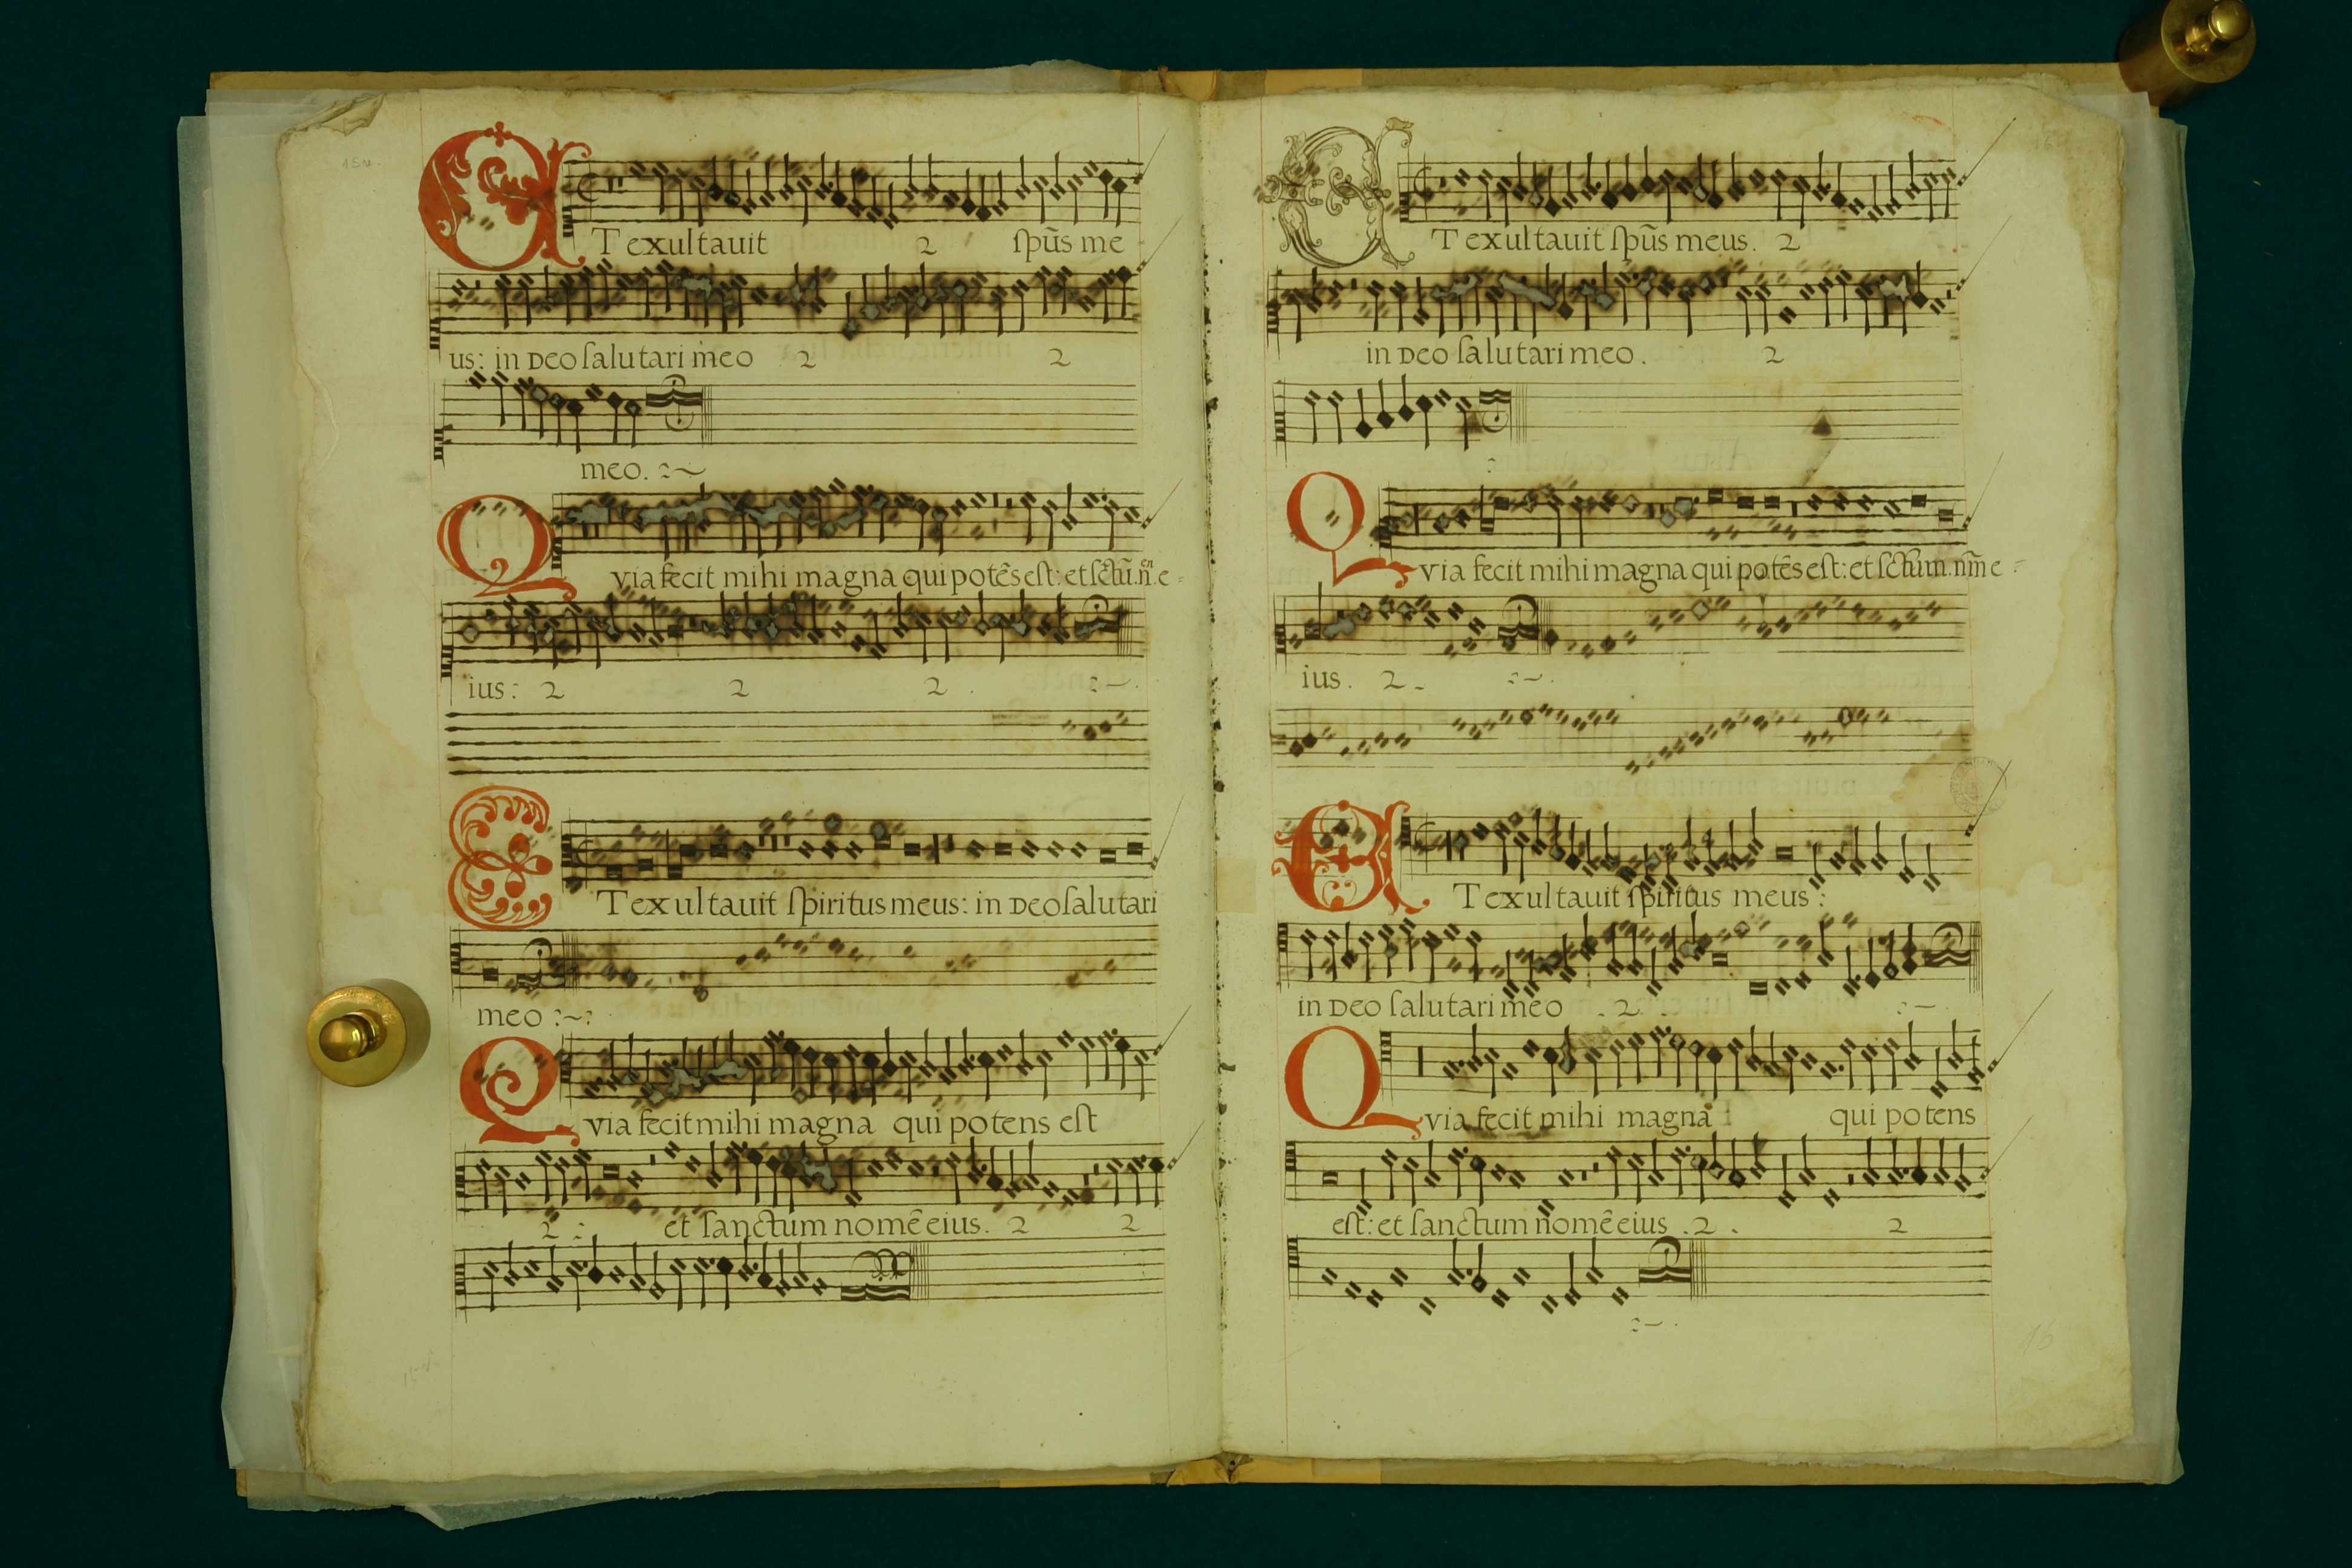 ET exultauit 2 spũs me
us: in Deo salutari meo 2 2
meo.
Quia fecit mihi magna qui potẽs est: et sctũ. nen. e-
ius: 2 2 2
ET exultauit spiritus meus: in Deo salutari
meo
Quia fecit mihi magna qui potens est
2 et sanctum nomẽ eius. 2 2
ET exultauit spũs meus. 2
in Deo salutari meo. 2
Quia fecit mihi magna qui potẽs est: et sctum. nm̃ e-
ius. 2
ET exultauit spiritus meus:
in Deo salutari meo 2
Quia fecit mihi magna qui potens
est: et sanctum nomẽ eius. 2. 2
16